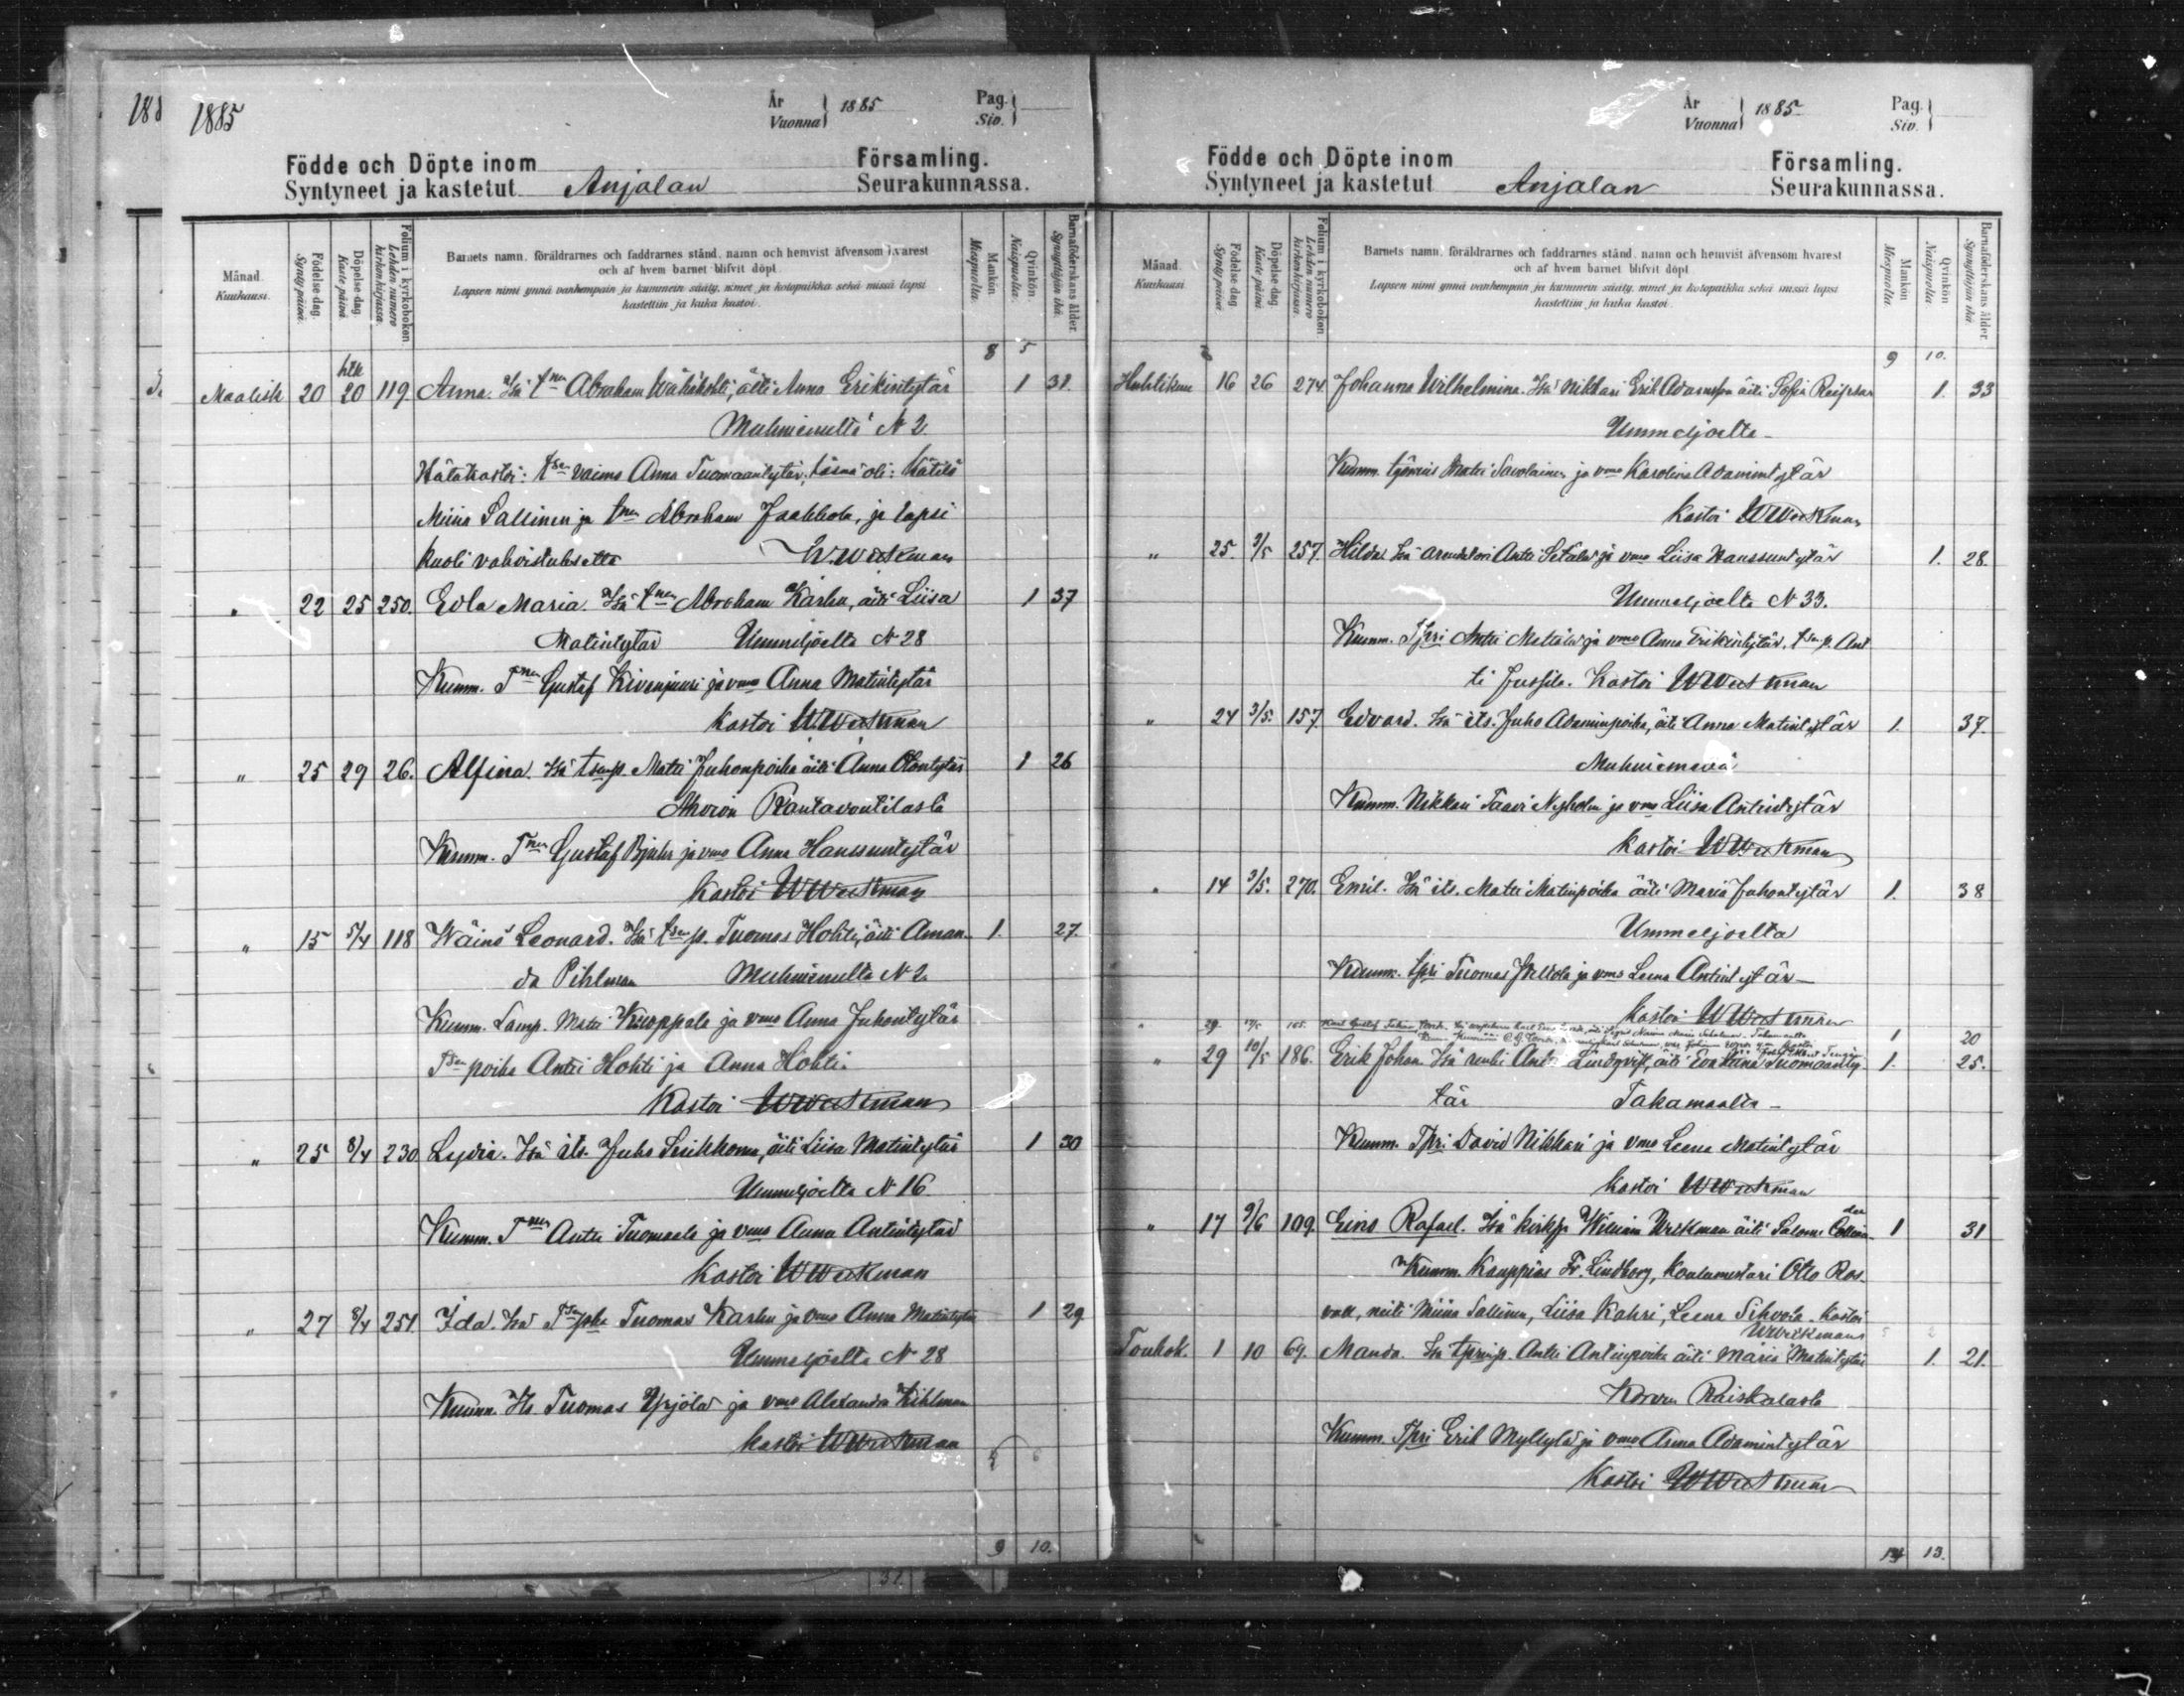 1885
År
Vuonna 1885
Pag.
Siv.
Födde och Döpte inom Församling.
Syntyneet ja kastetut Anjalan Seurakunnassa.
Månad. Kuuhausi.
Födelse dag. Synty päivä.
Döpelse dag. Kaste päivä.
Folium i kyrkoboken. Lehden numero kirkonkirjassa.
Barnets namn, föräldrarnes och faddrarnes stånd, namn och hemvist äfvensom hvarest
och af hvem barnet blifvit döpt.
Lapsen nimi ynnä vanhempain ja kummein sääty, nimet ja kotopaikka sekä missä lapsi
kastettiin ja kuka kastoi.
Mankön. Miespuolia.
Qvinkön. Naispuolia.
Barnaföderskans ålder. Synnyttäjän ikä.
8 5
htk
Maalisk 20 20 119 Anna. Isä tnen Abraham Wähäkohti, äiti Anna Erikintytär 1 31.
Muhniemeltä N 2.
Hätäkastoi: tsen vaimo Anna Tuomaantytär, läsnä oli: Kätilö
Miina Sallinen ja tnen Abraham Jaakkola, ja lapsi
kuoli vahvistuksetta WWeckman
" 22 25 250. Evla Maria. Isä tnen Abraham Karhu, äiti Liisa 1 37
Matintytär Ummeljoelta N 28
Kumm. Tnen Gustaf Kivenjuuri ja vmo Anna Matintytär
Kastoi WWeckman
" 25 29 26. Alfina. Isä tsenp. Matti Juhonpoika äiti Anna Otontytär 1 26
Rantavoutilasta
Kumm. Tnen Gustaf ja vmo Anna Hannuntytär
Kastoi WWeckman
" 15 5/4 118 Wäinö Leonard. Isä tsenp. Tuomas Hohti, äiti Aman- 1. 27
da Pihlman Muhniemeltä N 2.
Kumm. Lamp. Matti Kuoppala ja vmo Anna Juhontytär
Tsen poika Antti Hohti ja Anna Hohti.
Kastoi WWeckman
" 25 8/4 230 Lydia. Isä its. Juho äiti Liisa Matintytär 1 30
Ummeljoelta N 16.
Kumm. Tnen Antti Tuomaala ja vmo Anna Antintytär
Kastoi WWeckman
" 27 8/4 251. Ida. Isä Tsenpka Tuomas Karhu ja vmo Anna Matintytär 1 29
Ummeljoelta N 28
Kumm. Tuomas Yrjölä ja vmo Alexandra Kihlman
kastoi WWeckman
9 10.
År
Vuonna 1885
Pag.
Siv.
Födde och Döpte inom Församling.
Syntyneet ja kastetut Anjalan Seurakunnassa.
Månad. Kuuhausi.
Födelse dag. Synty päivä.
Döpelse dag. Kaste päivä.
Folium i kyrkoboken. Lehden numero kirkonkirjassa.
Barnets namn, föräldrarnes och faddrarnes stånd, namn och hemvist äfvensom hvarest
och af hvem barnet blifvit döpt.
Lapsen nimi ynnä vanhempain ja kummein sääty, nimet ja kotopaikka sekä missä lapsi
kastettiin ja kuka kastoi.
Mankön. Miespuolia.
Qvinkön. Naispuolia.
Barnaföderskans ålder. Synnyttäjän ikä.
9 10.
Huhtikuu 16 26 274. Johanna Wilhelmina. Isä Nikkari Erik Adamsson äiti Sofia 1. 33
Ummeljoelta
Kumm. työmies Matti Savolainen ja vmo Karolina Adamintytär
kastoi WWeckman
" 25. 3/5 257. Hilda. Isä arentatori Antti Setälä ja vmo Liisa Hannuntytär 1. 28.
Ummeljoelta N 33.
Kumm. Tpri Antti Mattila ja vmo Anna Erikintytär, tsen p. Ant
ti Jussila. Kastoi WWeckman
" 24 3/5. 157. Edvard. Isä its. Juho Adaminpoika, äiti Anna Matintytär 1. 37.
Muhniemeltä
Kumm. Nikkari Taavi Nyholm ja vmo Liisa Antintytär
kastoi WWeckman
" 14 3/5. 270. Emil. Isä its. Matti Matinpoika äiti Maria Juhontytär 1. 38
Ummeljoelta
Kumm. tpri Tuomas ja vmo Leena Antintytär
kastoi WWeckman
" 29. Karl Gustaf 1 20
" 29 10/5 186. Erik Johan. Isä Lindqvist, äiti Eva Tuomaanty- 1. 25.
tär Takamaalta
Kumm. Tpri David Nikkari ja vmo Leena Matintytär
kastoi WWeckman
" 17 9/6 109. Eino Rafael. Isä kirkhr Wilhiam Weckman äiti Salome 1 31
Kumm. Kauppias Fr. Lindborg, koulumestari Otto Ros-
vall, neiti Miina Sallinen, Liisa Kahri, Leena Sihvola. Kastoi
WWeckman
Toukok. 1 10 69. Manda. Isä tprinp. Antti Antinpoika äiti Maria Matintytär 1. 21.
Korvan Raiskalasta
Kumm. Tpri Erik Myllylä ja vmo Anna Adamintytär
Kastoi WWeckman
14 13.